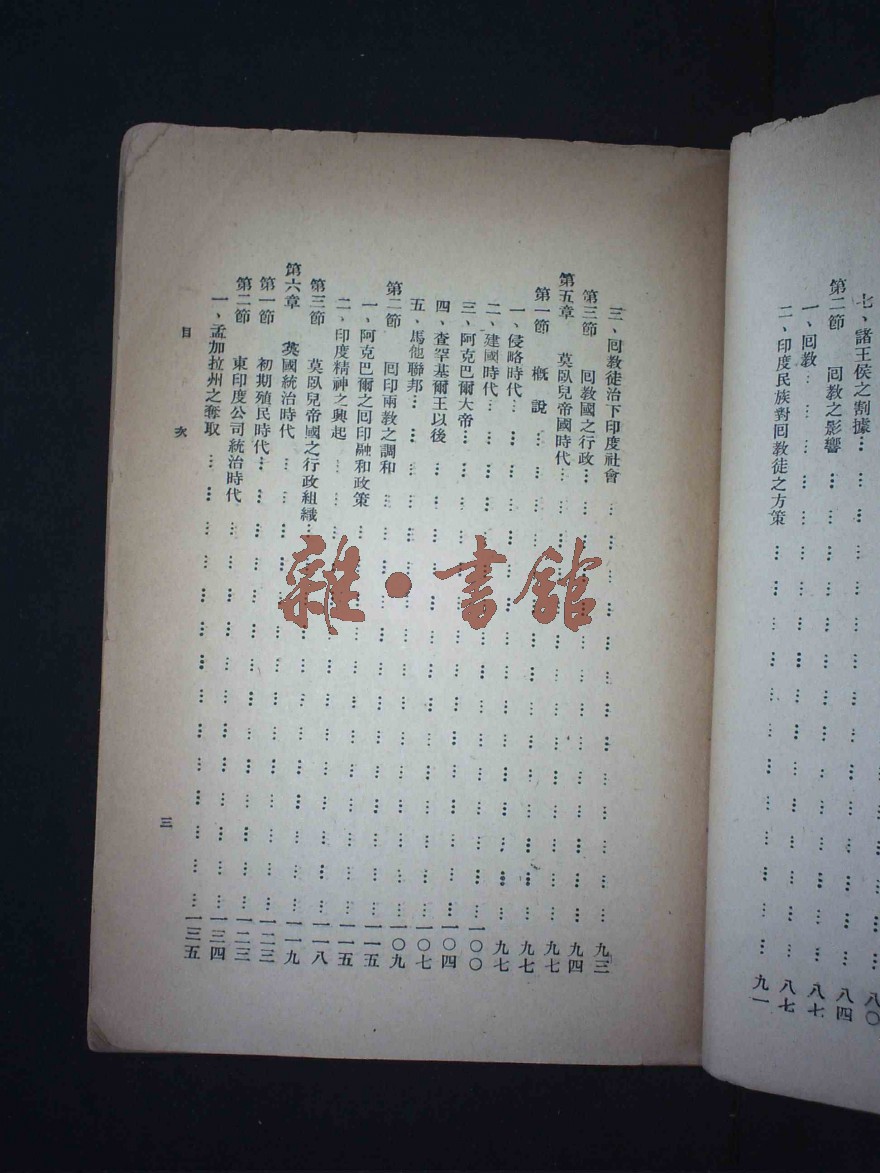 八〇
七、諸王侯之割據……八四
第二節　囘教之影響……八七
一、囘教……八七
二、印度民族對囘教徒之方策……九一
三、囘教徒治下印度社會……九三
第三節　囘教國之行政……九四
第五章　莫臥兒帝國時代……九七
第一節　概說……九七
一、侵略時代……九七
二、建國時代……一〇〇
三、阿克巴爾大帝……一〇四
四、查罕基爾王以後……一〇七
五、馬他聯邦……一〇九
第二節　囘印兩教之調和……一一五
一、阿克巴爾之囘印融和政策……一一五
二、印度精神之興起……一一八
第三節　莫臥兒帝國之行政組織……一一九
第六章　英國統治時代……一二三
第一節　初期殖民時代……一二三
第二節　東印度公司統治時代……一三四
一、孟加拉州之奪取……一三五
目次
三
雜·書館